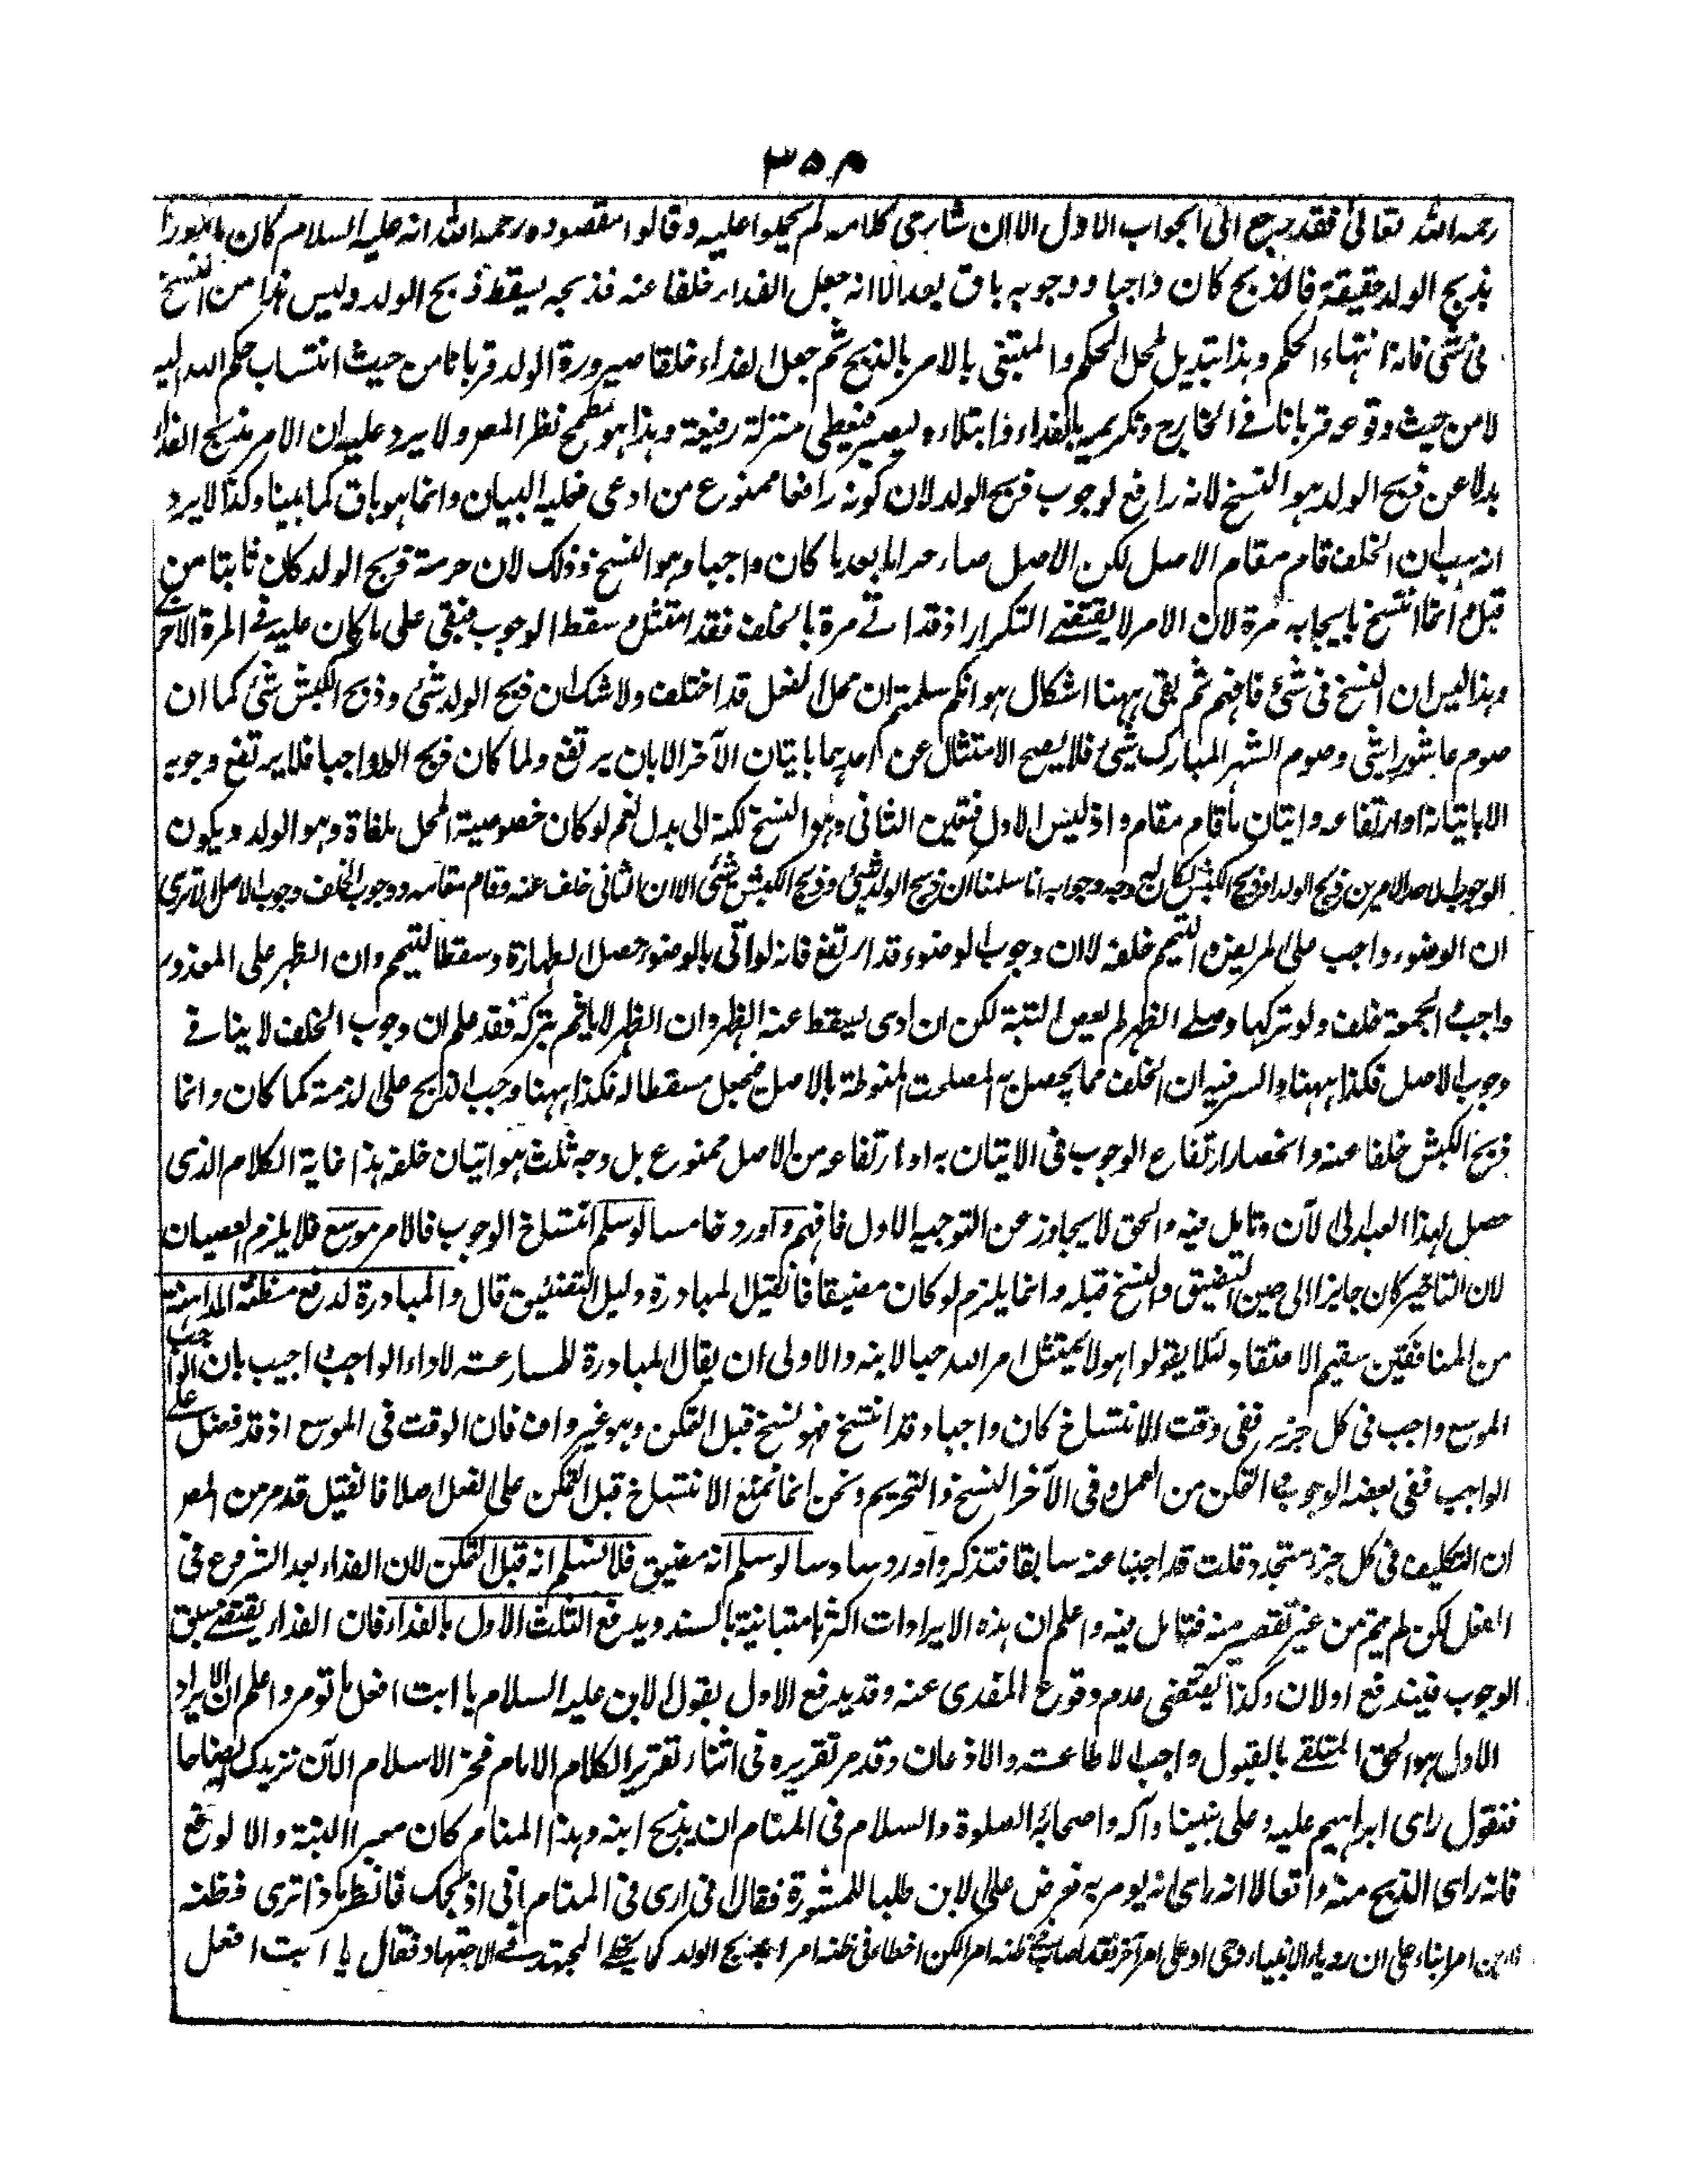 ٣٥٨
رحمہ اللہ تعالیٰ فقد رجع الی الجواب الاول الا ان شارحی کلامہ لم یحملوا علیہ وقالوا مقصودہ رحمہ اللہ انہ علیہ السلام کان مامورا
بذبح الولد حقیقۃ فالذبح کان واجبا ووجوبہ باق بعد الا انہ جعل الفداء خلفا عنہ فذبحہ یسقط ذبح الولد ولیس ہذا من النسخ
فی شئ فانہ انتہاء الحکم وہذا تبدیل لمحل الحکم والمبتغی بالامر بالذبح ثم جعل الفداء خلفا صیرورۃ الولد قربانا من حیث انتساب حکم اللہ الیہ
لا من حیث وقوعہ قربانا فے الخارج وتکریمہ بالفداء وابتلاءہ لیصبر فیعطی منزلۃ رفیعۃ وہذا ہو مطمح نظر المصر ولا یرد علیہ ان الامر بذبح الفداء
بدلا عن ذبح الولد ہو النسخ لانہ رافع لوجوب ذبح الولد لان کونہ رافعا ممنوع من ادعی فعلیہ البیان وانما ہو باق کما بینا وکذا لا یرد
انہ ہب ان الخلف قام مقام الاصل لکن الاصل صار حراما بعد ما کان واجبا وہو النسخ وذلک لان حرمۃ ذبح الولد کان ثابتا من
قبل وانما انتسخ بایجابہ مرۃ لان الامر لا یقتضے التکرار اذ قد اتے مرۃ بالخلف فقد امتثل وسقط الوجوب فبقی علی ما کان علیہ فے المرۃ الاخری
وہذا لیس من النسخ فی شئ فافہم ثم بقی ہہنا اشکال ہو انکم سلمتم ان محل الفعل قد اختلف ولا شک ان ذبح الولد شئ وذبح الکبش شئ کما ان
صوم عاشورا شئ وصوم الشہر المبارک شئ فلا یصح الامتثال عن احدیہما باتیان الآخر الا بان یرتفع ولما کان ذبح الولد واجبا فلا یرتفع وجوبہ
الا باتیانہ او ارتفاعہ واتیان ما قام مقامہ واذ لیس الاول فتعین الثانی وہو النسخ لکنہ الی بدل نعم لو کان خصوصیۃ المحل ملغاۃ وہو الولد ویکون
الوجوب لاحد الامرین ذبح الولد او ذبح الکبش لکان لہ وجہ وجوابہ انا سلمنا ان ذبح الولد شئ وذبح الکبش شئ الا ان الثانی خلف عنہ وقام مقامہ ووجوب الخلف وجوب الاصل الا تری
ان الوضوء واجب علی المریض والتیمم خلفہ لا ان وجوب الوضوء قد ارتفع فانہ لو اتی بالوضوء حصل الطہارۃ وسقط التیمم وان الظہر علی المعذور
واجب والجمعۃ خلف ولو ترکہا وصلے الظہر لم یعص البتۃ لکن ان ادی یسقط عنہ الظہر وان الظہر لا یاثم بترکہ فقد علم ان وجوب الخلف لا ینافے
وجوب الاصل فکذا ہہنا والسر فیہ ان الخلف مما یحصل بہ المصلحۃ المنوطۃ بالاصل فجعل مسقطا لہ فکذا ہہنا وجب الذبح علی الذمۃ کما کان وانما
ذبح الکبش خلفا عنہ وانحصار ارتفاع الوجوب فی الاتیان بہ او ارتفاعہ من الاصل ممنوع بل وجہ ثلث ہو اتیان خلفہ ہذا غایۃ الکلام الذی
حصل لہذا العبد الی الآن وتامل فیہ والحق لا یتجاوز عن التوجیہ الاول فافہم واورد خامسا لو سلم انتساخ الوجوب فالامر موسع فلا یلزم العصیان
لان التاخیر کان جایزا الی حین التضیق والنسخ قبلہ وانما یلزم لو کان مضیقا فان قیل المبادرۃ دلیل التضییق قال والمبادرۃ لدفع مظنۃ المداہنۃ
من المنافقین سقیم الاعتقاد لئلا یقولوا ہو لا یمتثل امر اللہ حبا لابنہ والاولی ان یقال المبادرۃ للمسارعۃ لاداء الواجب واجیب بان الواجب
الموسع واجب فی کل جزء ففی وقت الانتساخ کان واجبا وقد انتسخ فہو نسخ قبل التمکن وہو غیر واف فان الوقت فی الموسع اذ قد فضل علے
الواجب ففی بعضہ الوجوب والتمکن من العمل وفی الآخر النسخ والتحریم ونحن انما نمنع الانتساخ قبل التمکن علی الفعل اصلا فان قیل قد مر من المصر
ان التکلیف فی کل جزء متجدد قلت قد اجبنا عنہ سابقا فتذکر واورد سادسا لو سلم انہ مضیق فلا نسلم انہ قبل التمکن لان الفداء بعد الشروع فی
الفعل لکن لم یتم من غیر تقصیر منہ فتامل فیہ واعلم ان ہذہ الایرادات اکثرہا متباینۃ بالسند ویدفع الثلث الاول بالفداء فان الفداء یقتضے سبق
الوجوب فیندفع اولان وکذا یقتضی عدم وقوع المفدی عنہ وقد یدفع الاول بقول الابن علیہ السلام یا ابت افعل ما تومر واعلم ان الایراد
الاول ہو الحق المتلقے بالقبول واجب الاطاعت والاذعان وقد مر تقریرہ فی اثناء تقریر الکلام الامام فخر الاسلام الآن نزیدک ایضاحا
فنقول رای ابراہیم علیہ وعلی نبینا وآلہ واصحابہ الصلوۃ والسلام فی المنام ان یذبح ابنہ وہذا المنام کان معبرا البتۃ والا لوقع
فانہ رای الذبح منہ واقعا لا انہ رای انہ یومر بہ فعرض علی الابن طلبا للمشورۃ فقال انی اری فی المنام انی اذبحک فانظر ماذا تری فظنہ
الابن امرا بناء علی ان رویا الانبیاء وحی او علی امر آخر فقد اصاب فے ظنہ امرا لکن اخطا فی ظنہ امرا بذبح الولد کما یخطے المجتہد فے الاجتہاد فقال یا ابت افعل